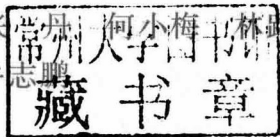 丹 何小梅 林
志鹏
常州大学图书馆
藏书章